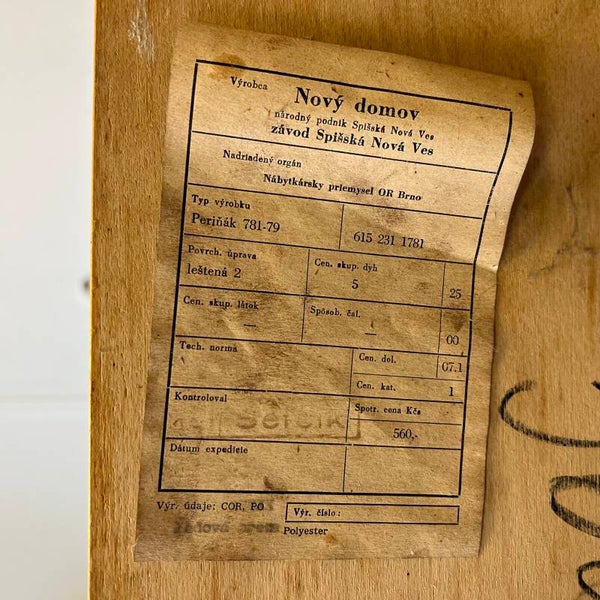 Výrobca
Nový domov
národný podnik Spišská Nová Ves
závod Spišská Nová Ves
Nadriadený orgán
Nábytkársky priemysel OR Brno
Typ výrobku
Periňák 781-79
615 231 1781
Povrch. úprava
leštená 2
Cen. skup. dyh
5
25
Cen. skup. látok
—
Spôsob. čal.
—
00
Tech. norma
Cen. dol.
07.1
Cen. kat.
1
Kontroloval
Spotr. cena Kčs
560,-
Dátum expedície
Výr. údaje: COR, PO
Výr. číslo:
Polyester